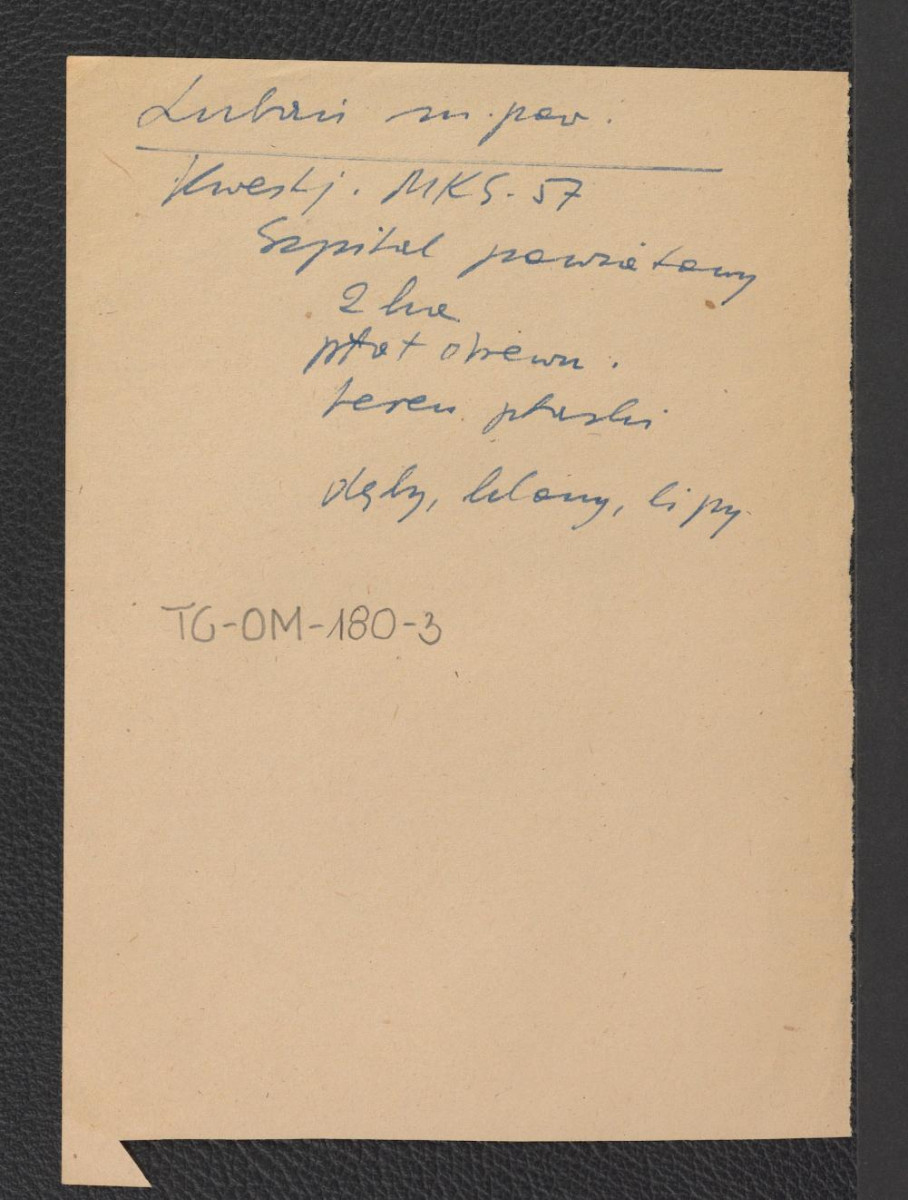 Lubań m. pow.
Kwestj. MKS-57
Szpital powiatowy
2 ha
płot drewn.
teren płaski
dęby, klony, lipy
TG-OM-180-3